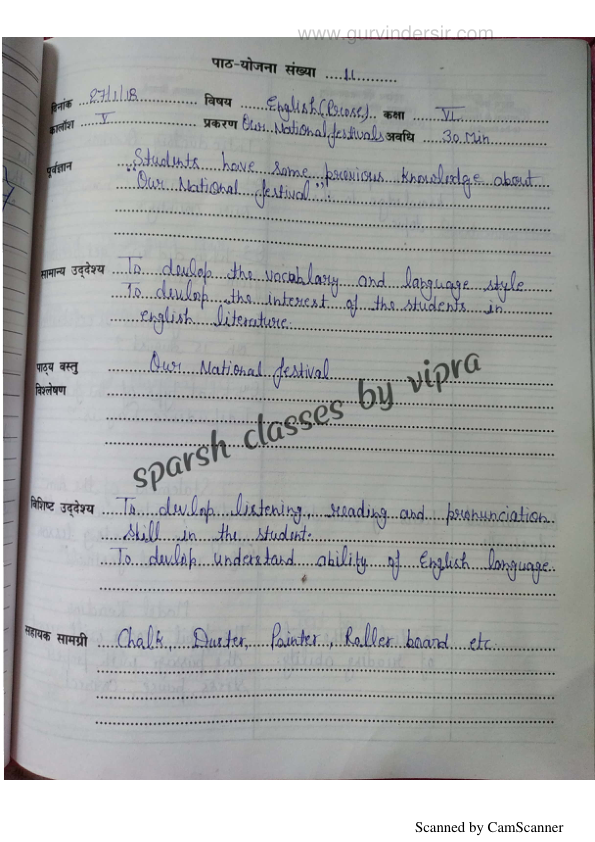 www.gurvindersir.com
पाठ-योजना संख्या 11
दिनांक 27/1/18 विषय English (Prose) कक्षा VI
कालांश V प्रकरण Our National festivals अवधि 30 Min
पूर्वज्ञान Students have some previous knowledge about
"Our National festival".
सामान्य उद्देश्य To devlop the vocablary and language style
To devlop the interest of the students in
english literature.
पाठ्य वस्तु Our National festival
विश्लेषण
sparsh classes by vipra
विशिष्ट उद्देश्य To devlop listening, reading and pronunciation
skill in the student.
To devlop understand ability of English language
सहायक सामग्री Chalk, Duster, Pointer, Roller board etc
Scanned by CamScanner